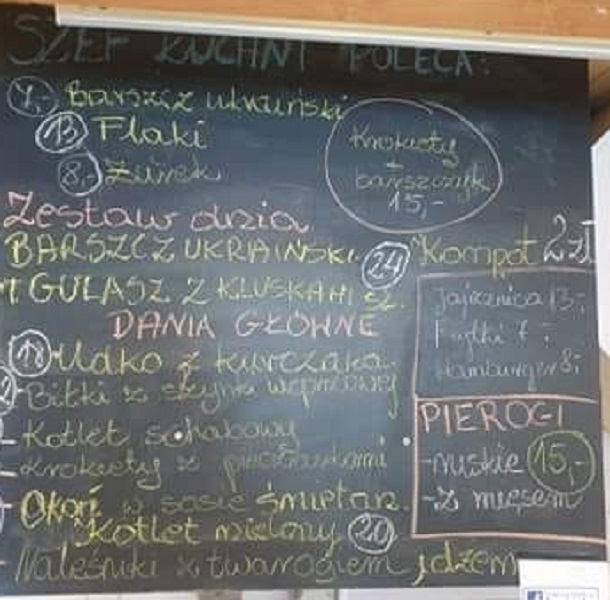 SZEF KUCHNI POLECA:
7,- Barszcz ukraiński
13 Flaki
8,- Żurek
Krokiety
+
barszczyk
15,-
Zestaw dnia
BARSZCZ UKRAIŃSKI
24
GULASZ Z KLUSKAMI
Kompot 2zł
DANIA GŁÓWNE
18 Udko z kurczaka
Bitki ze wieprzowej
Kotlet schabowy
Krokiety z pieczarkami
Okoń w sosie śmietan.
Kotlet mielony 20
Naleśniki z twarogiem, dżem
Jajecznica 13,-
Frytki 7,-
Hamburger 8,-
PIEROGI
-ruskie 15,-
-z mięsem